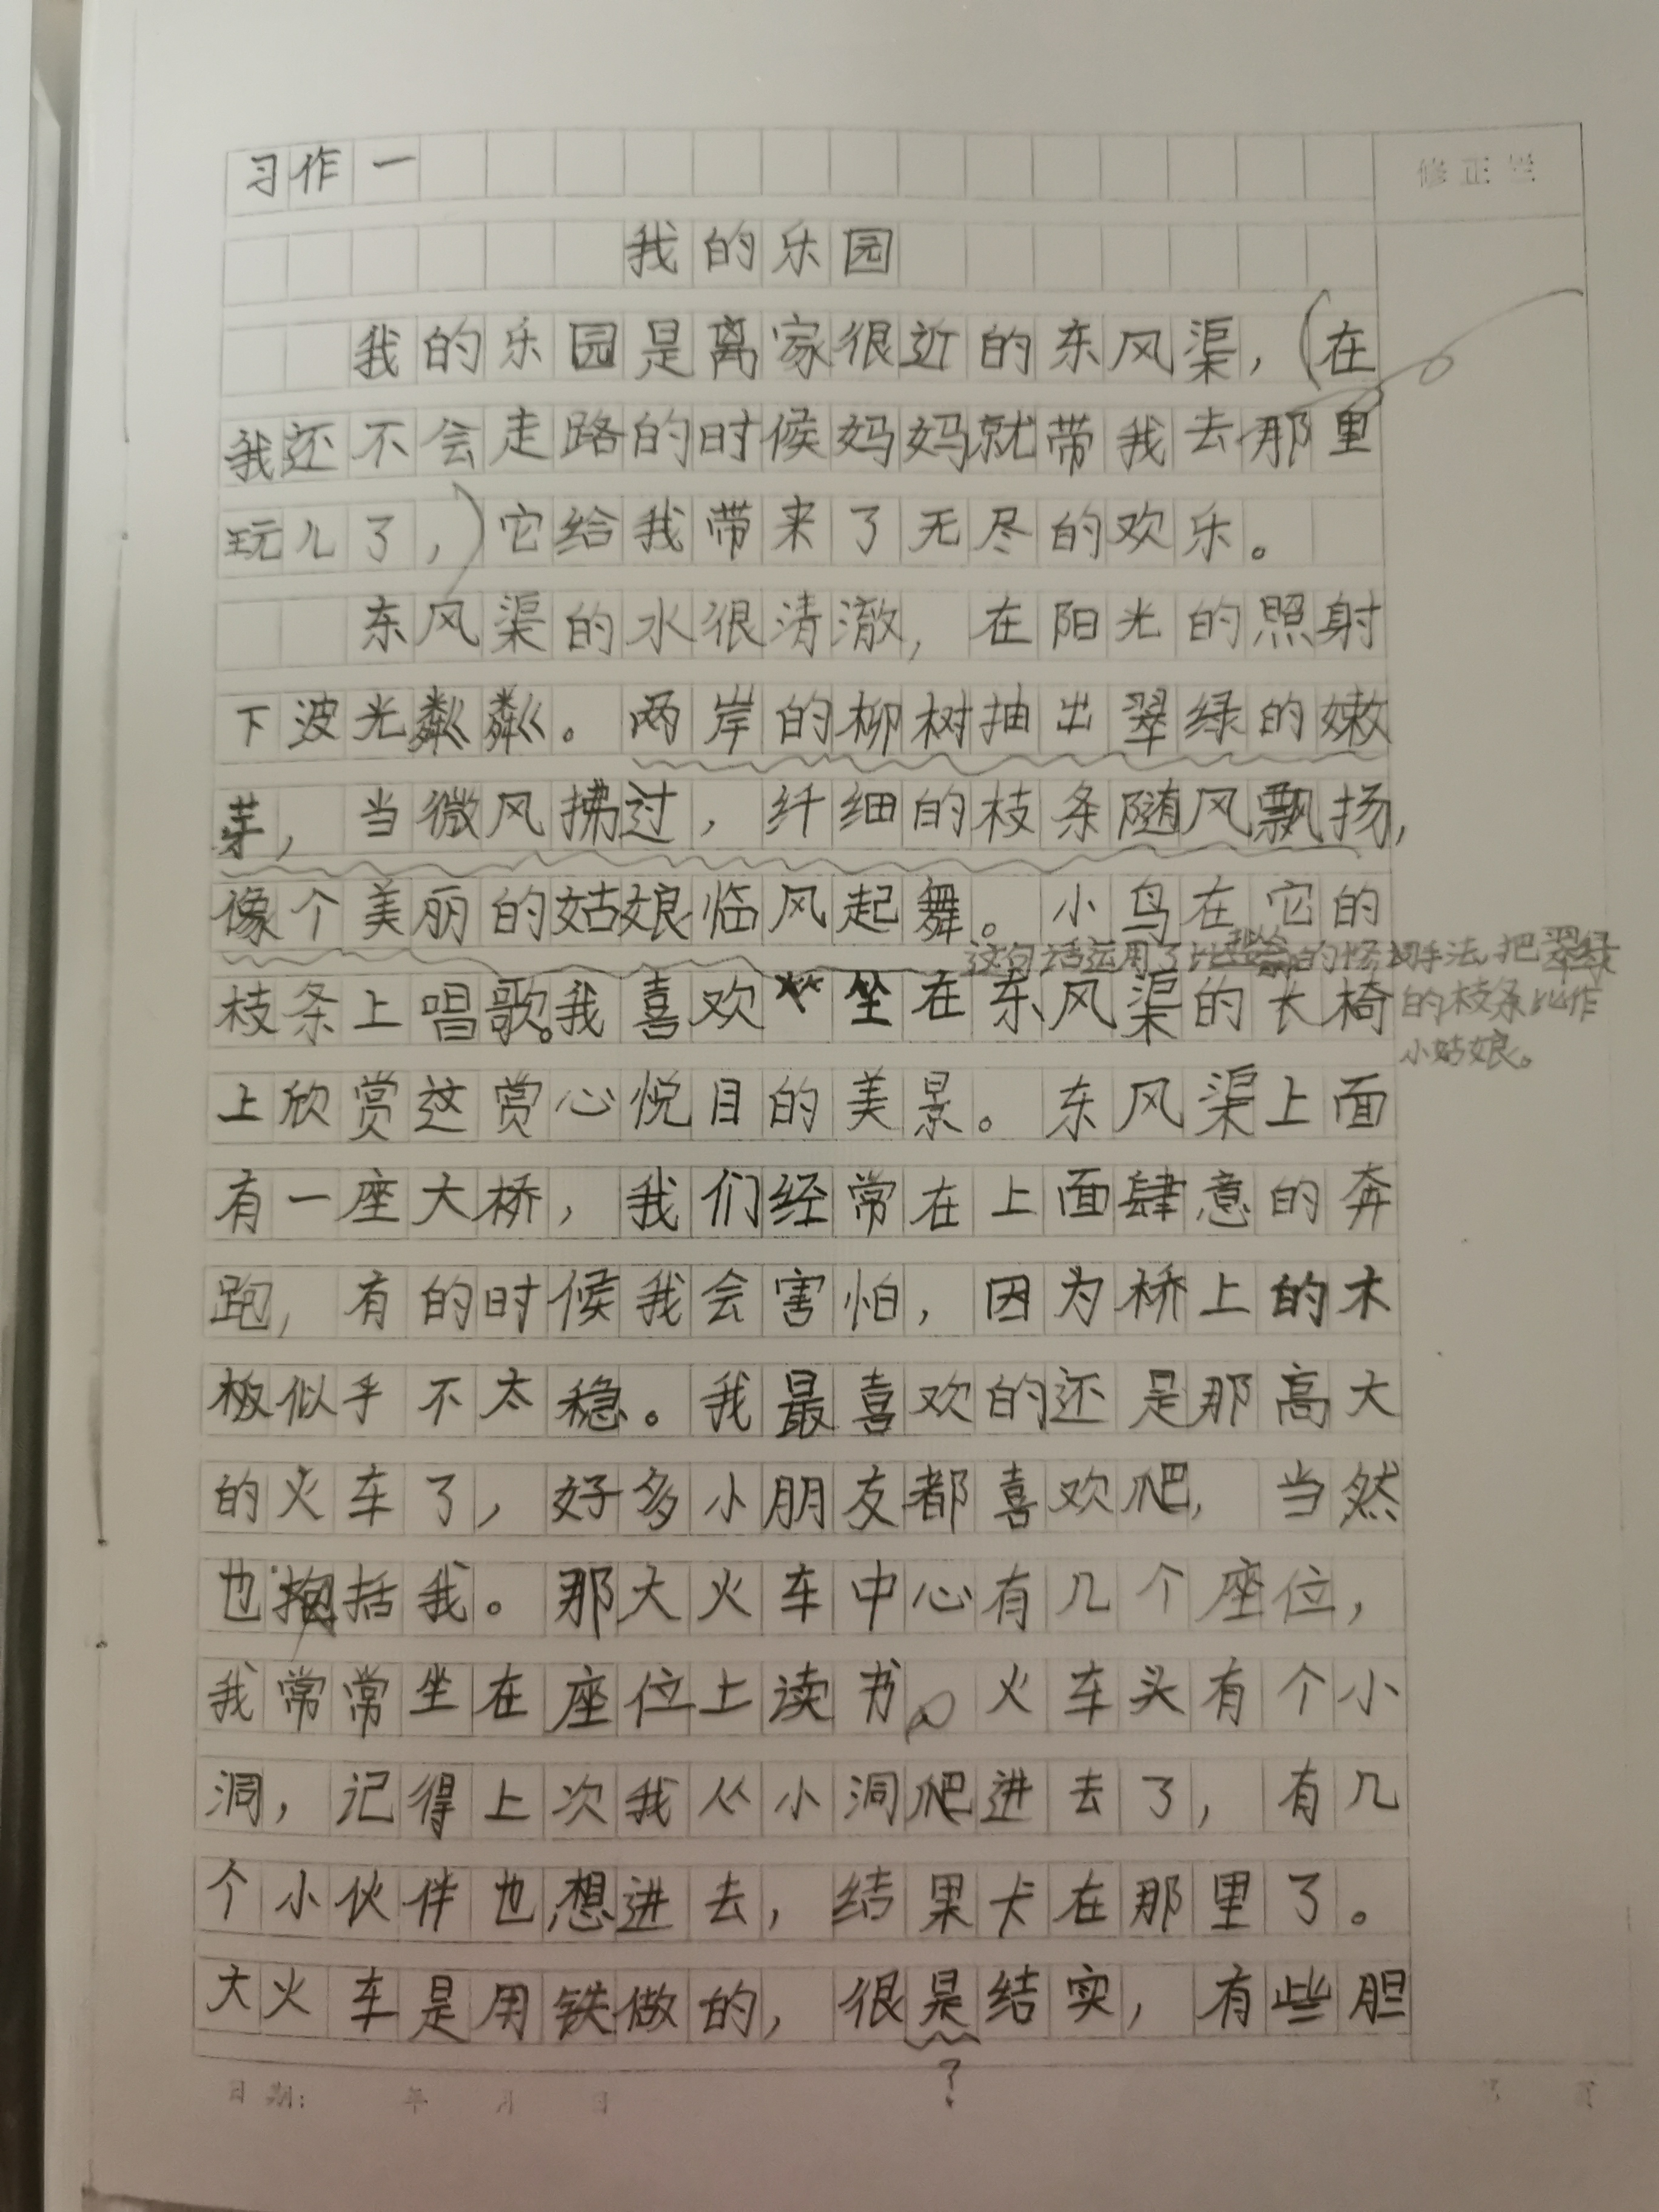 习作一
修正栏
我的乐园
我的乐园是离家很近的东风渠，（在
我还不会走路的时候妈妈就带我去那里
玩儿了，）它给我带来了无尽的欢乐。
东风渠的水很清澈，在阳光的照射
下波光粼粼。两岸的柳树抽出翠绿的嫩
芽，当微风拂过，纤细的枝条随风飘扬，
像个美丽的姑娘临风起舞。小鸟在它的
这句话运用了比的修手法,把翠绿
枝条上唱歌。我喜欢坐在东风渠的长椅
的枝条比作
小姑娘。
上欣赏这赏心悦目的美景。东风渠上面
有一座大桥，我们经常在上面肆意的奔
跑，有的时候我会害怕，因为桥上的木
板似乎不太稳。我最喜欢的还是那高大
的火车了，好多小朋友都喜欢爬，当然
也包括我。那大火车中心有几个座位，
我常常坐在座位上读书。火车头有个小
洞，记得上次我从小洞爬进去了，有几
个小伙伴也想进去，结果卡在那里了。
大火车是用铁做的，很是结实，有些胆
?
日期： 年 月 日